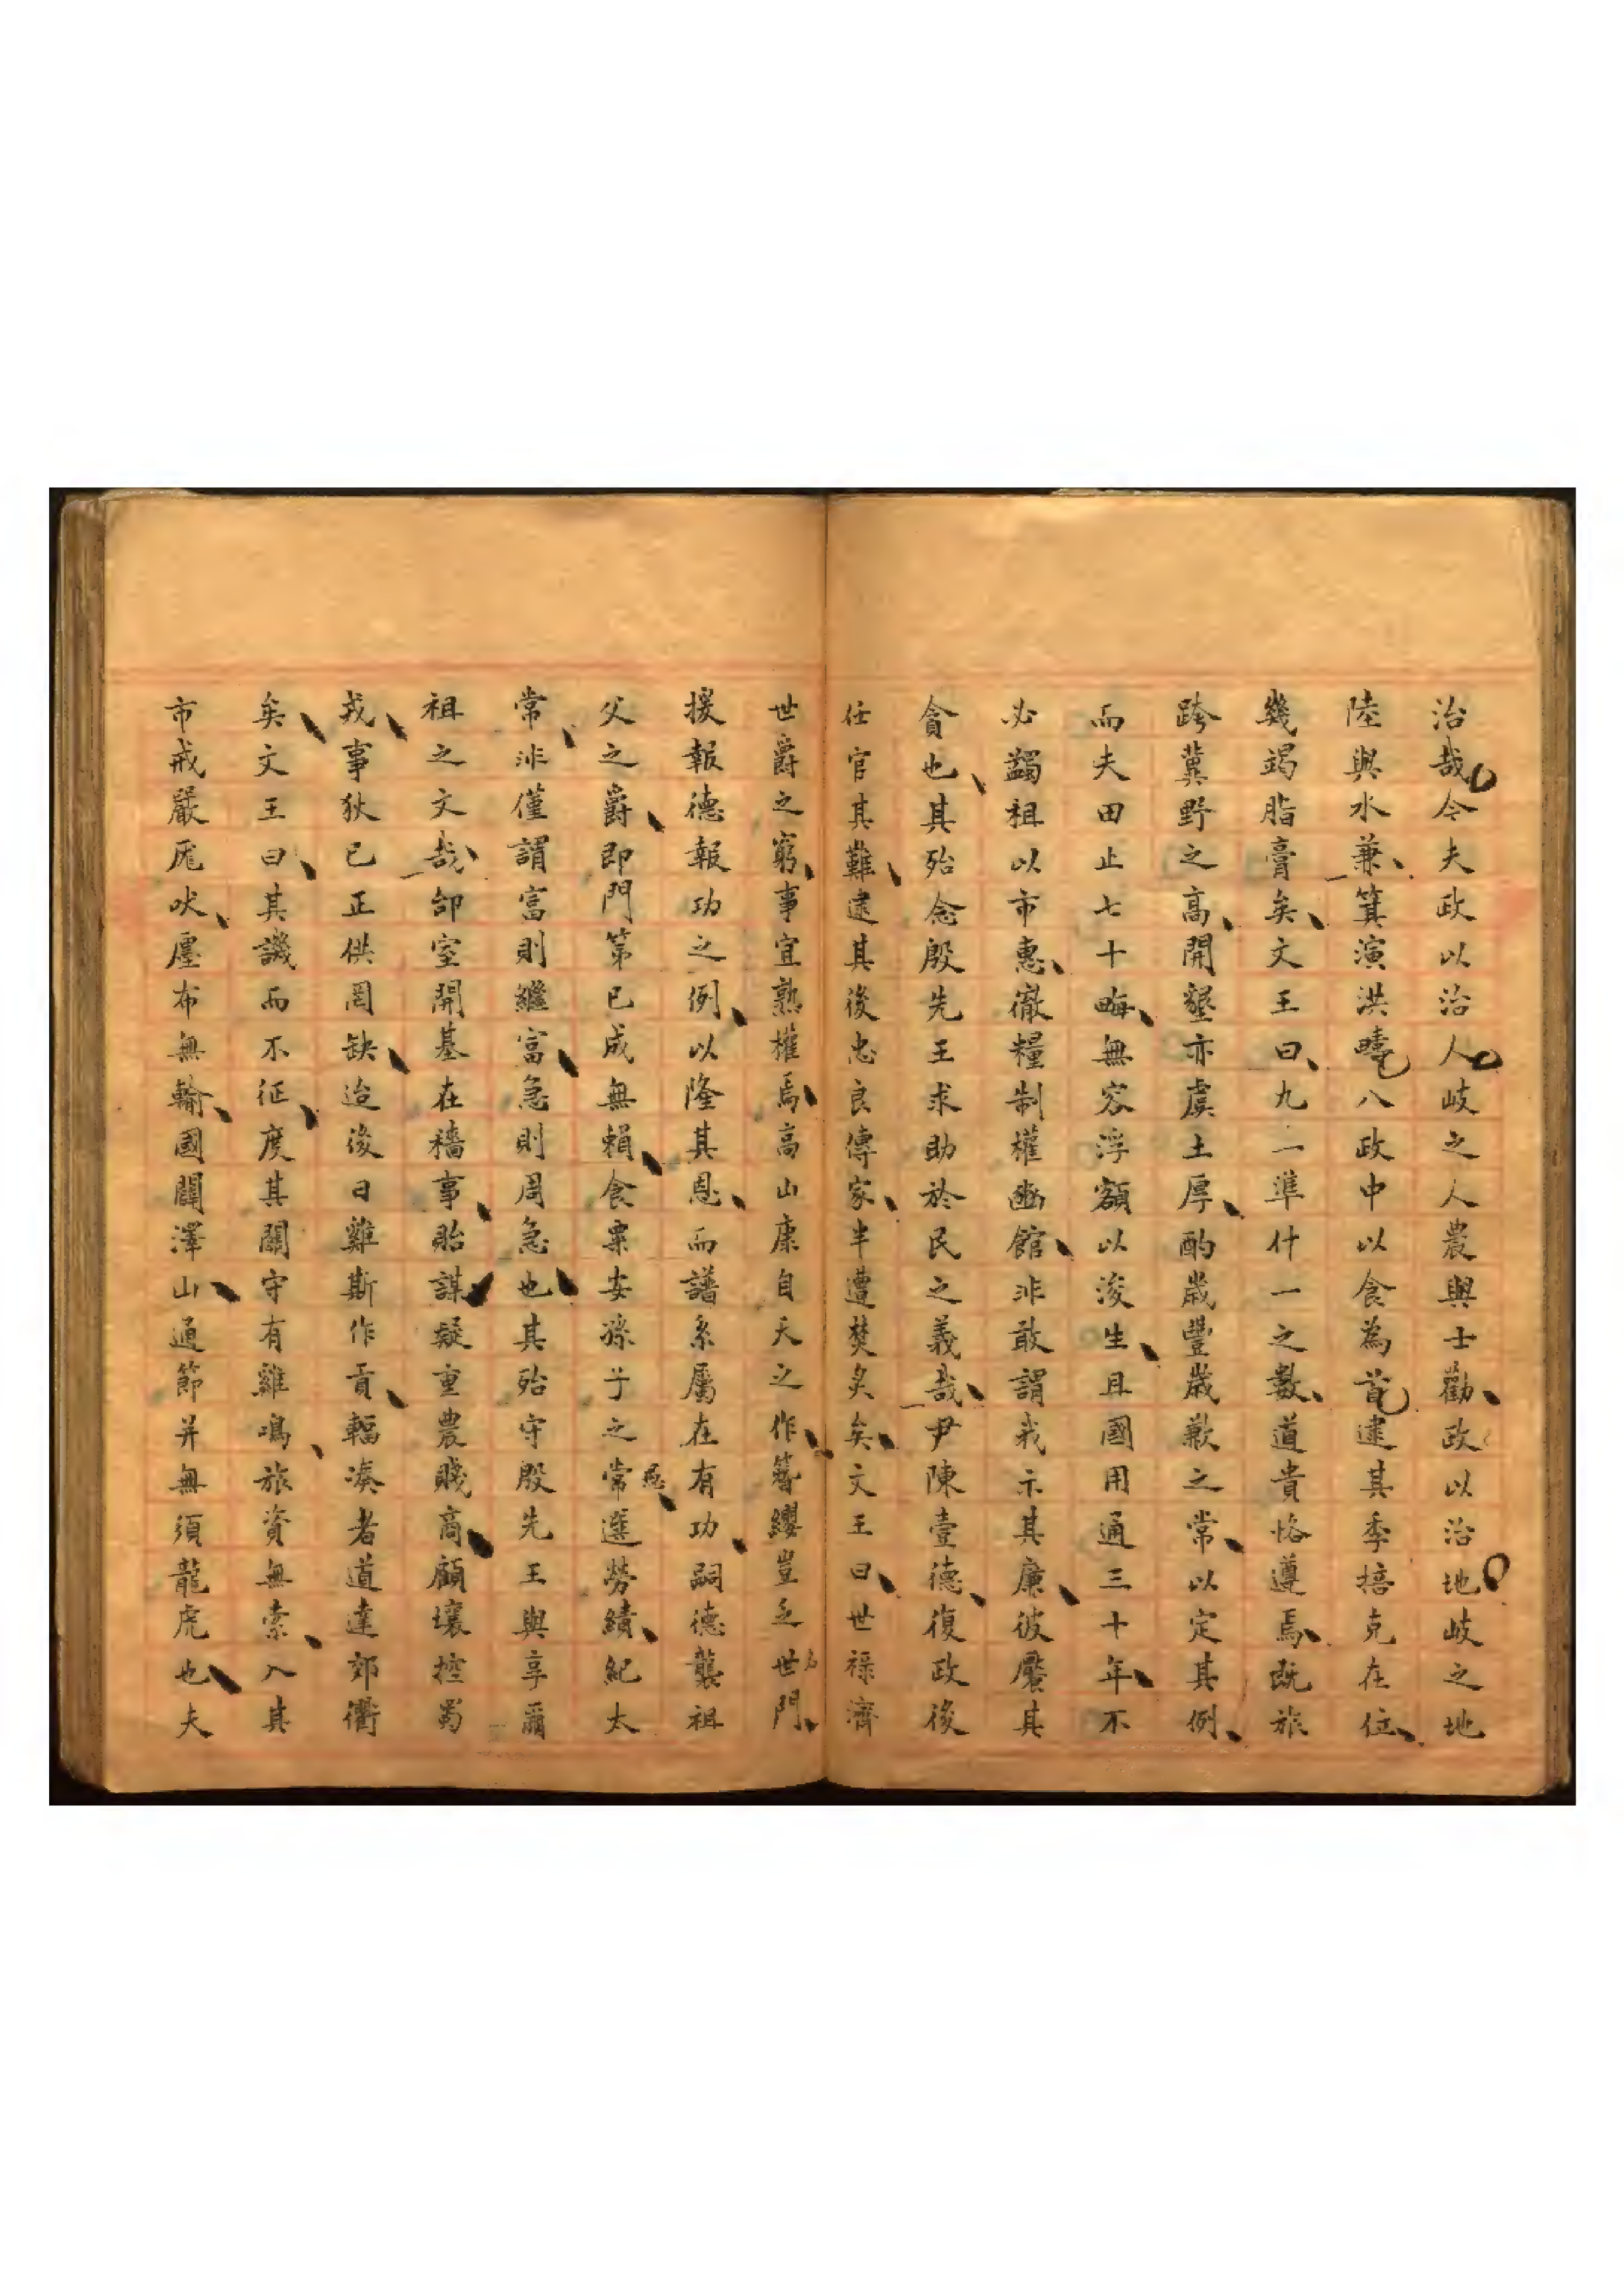 治哉今夫政以治人岐之人農與士勸政以治地岐之地
陸與水兼箕演洪疇八政中以食為首逮其季掊克在位
幾竭脂膏矣文王曰九一準什一之數道貴恪遵焉既旅
跨冀野之高開墾亦虞土厚酌歲豐歲歉之常以定其例
而夫田止七十畮無容浮額以浚生且國用通三十年不
必蠲祖以市惠徹糧制權豳館非敢謂我示其廉彼饜其
貪也其殆念殷先王求助於民之義哉尹陳壹德復政後
任官其難逮其後忠良傳家半遭焚炙矣文王曰世祿濟
世爵之窮事宜熟權焉高山康自天之作簪纓豈乏世門
援報德報功之例以隆其恩而譜系屬在有功嗣德襲祖
父之爵即門第已成無賴食粟安孫子之常選勞績紀太
常沭僅謂富則繼富急則周急也其殆守殷先王與享爾
祖之文哉邰室開基在穡事貽謀疑重農賤商顧壤控蜀
戎事狄已正供罔缺迨後日雞斯作貢輻湊者道達郊衢
矣文王曰其譏而不征度其關守有雞鳴旅資無索入其
市戒嚴厖吠廛布無輸國闢澤山通節并無須龍虎也夫